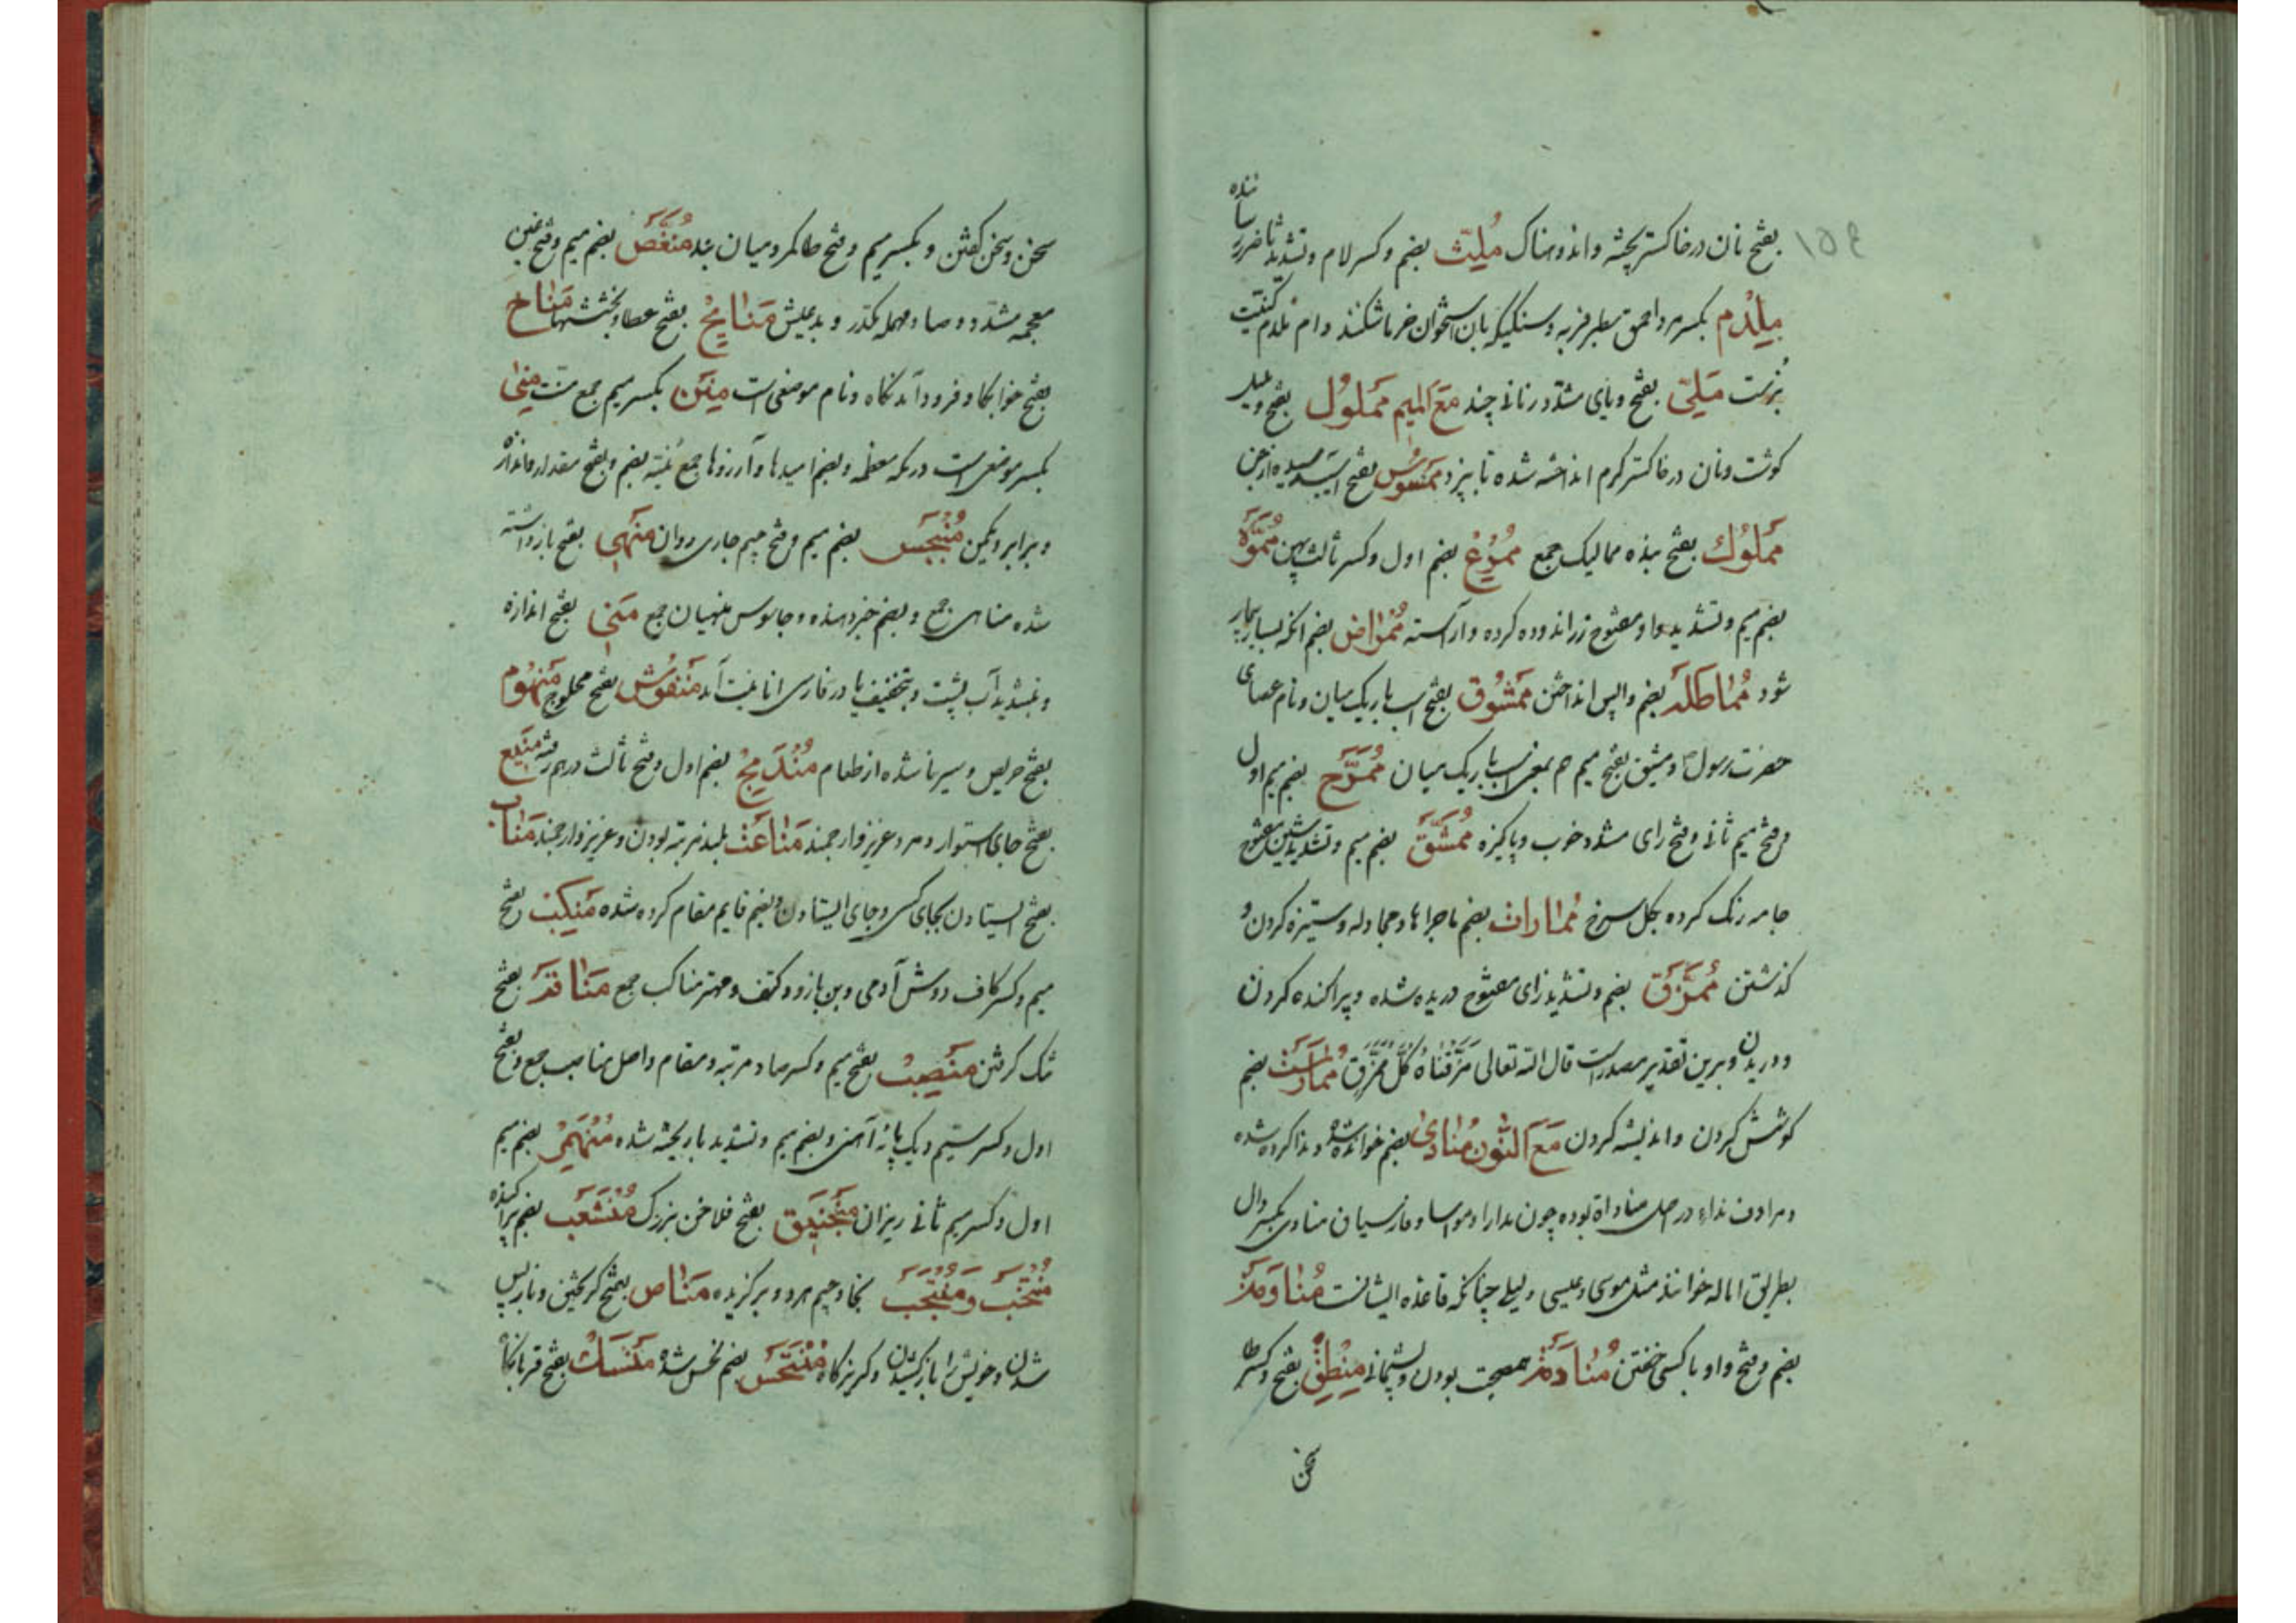 بفتح نان در خاکستر پخته و اندوهناک مُلِثّ بضم و کسر لام و تشدید ثا ضرر رساننده
مِلْدَم بکسر مرد احمق سطبر فربه و سنگیکه بان استخوان خرما شکنند و ام ملدم کنیت
تبست مَلِیّ بفتح و یای مشدد زمانی چند مَعَ المیم مَملُول بفتح و
گوشت و نان در خاکستر گرم انداخته شده تا بپزد مَمسُوس بفتح
مَملُوك بفتح بنده ممالیک جمع بضم اول و کسر ثالث مُمَوَّه
بضم میم و تشدید واو مفتوح زر اندوده کرده و آراسته مُمراض بضم آنکه بسیار بیمار
شود مُماطَلَه بضم واپس انداختن مَمشُوق بفتح اسب باریک میان و نام عصای
حضرت رسول و مشیق بفتح میم هم بمعنی اسب باریک میان بضم میم اول
و فتح میم ثانی و فتح رای مشدد خوب و پاکیزه مُمَشَّق بضم میم و تشدید شین مفتوح
جامه رنگ کرده بگل سرخ مُمارات بضم ماجراها و مجادله و ستیزه کردن و
گذشتن مُمَزَّق بضم و تشدید زای مفتوح دریده شده و پراکنده کردن
و دریدن و برین تقدیر مصدر است قال الله تعالی مَزَّقْنَاهُ كُلَّ مُمَزَّقٍ مُمارَسَت بضم
کوشش کردن و اندیشه کردن مَعَ النُّون مُنادیٰ بضم خوانده شده و ندا کرده شده
و مرادف نداء در اصل مناداة بوده چون مدارا و مواسا و فارسیان منادی بکسر دال
بطریق اماله خوانند مثل موسی و عیسی و لیلی چنانکه قاعده ایشانست مُناوَمَة
بضم و فتح واو با کسی خفتن مُنادَمَة همصحبت بودن و پشیمانی مَنْطِق بفتح و کسر طا
سخن
سخن و سخن گفتن و بکسر میم و فتح طا کمر و میان بند مُنَغَّص بضم میم و فتح غین
معجمه مشدد و صاد مهمله مکدر و بدعیش مَنایِح بفتح عطا و بخششها مَناخ
بفتح خوابگاه و فرود آمدنگاه و نام موضعی است مِنَن بکسر میم جمع منت مِنیٰ
بکسر موضعی است در مکه معظمه و بضم امیدها و آرزوها جمع مُنیه بضم و بفتح مقدار و اندازه
و برابر و یکمن مُنبَجِس بضم میم و فتح جیم جاری و روان مَنهِی بفتح باز داشته
شده مناهی جمع و بضم خبر دهنده و جاسوس منهیان جمع مَنی بفتح اندازه
و بتشدید آب پشت و بتخفیف یا در فارسی انانیت آید مَنفُوش بفتح محلوج مَنهُوم
بفتح حریص و سیر ناشده از طعام مُندَمِج بضم اول و فتح ثالث درهم رفته مَنیع
بفتح جای استوار و مرد عزیز و ارجمند مَناعَت بلند مرتبه بودن و عزیز و ارجمند مَناب
بفتح ایستادن بجای کسی و جای ایستادن و بضم قایم مقام کرده شده مَنکِب بفتح
میم و کسر کاف دوش آدمی و بن بازو و کتف و مهتر مناکب جمع مَناقَد بفتح
تنگ گرفتن مَنصِب بفتح میم و کسر صاد مرتبه و مقام و اصل مناصب جمع و بفتح
اول و کسر سیم دیک پایه آهنی و بضم میم و تشدید با ریخته شده مُنهَمِر بضم میم
اول و کسر میم ثانی ریزان مَنجَنیق بفتح فلاخن بزرگ مُنشَعِب بضم پراکنده
مُنتَخَب وَ مُنتَجَب بخا و جیم هر دو برگزیده مَناص بفتح گریختن و باز پس
شدن و خویش را باز کشیدن و گریزگاه بضم نحس شده مَنسَك بفتح قربانگاه